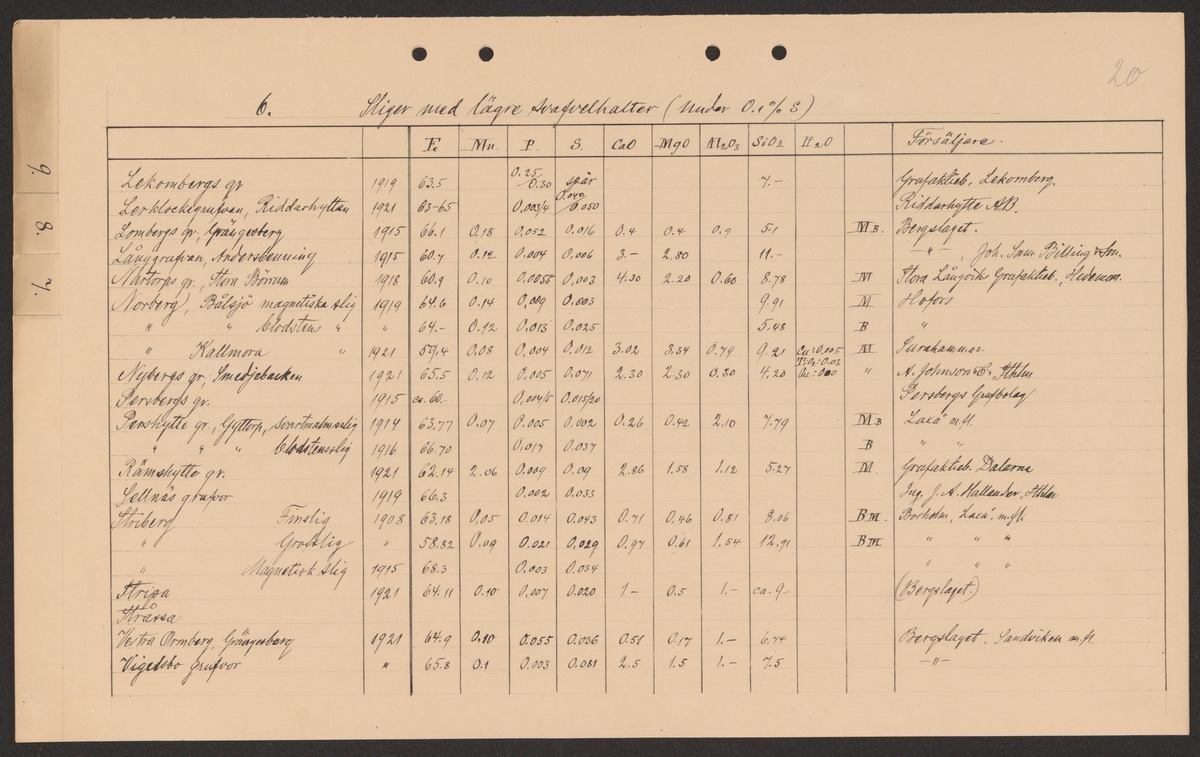 20
6. Sliger med lägre svafvelhalter (under 0.1 % S)
Fe Mn. P. S. CaO MgO Al2O3 SiO2 H2O Försäljare.
Lekombergs gr 1919 63.5 0.25/0.30 spår 7.- Grufaktieb. Lekomberg.
Lerklockegrufvan, Riddarhyttan 1921 63-65 0.003/4 0.040/0.050 Riddarhytte A.B.
Lombergs gr, Grängesberg 1915 66.1 0.18 0.052 0.016 0.4 0.4 0.9 5.1 M B. Bergslaget.
Långgrufvan, Andersbenning 1915 60.7 0.12 0.004 0.006 3.- 2.80 11.- " , Joh. Sam. Billing & Son.
Nartorps gr., Stora 1918 60.9 0.10 0.0055 0.003 4.30 2.20 0.60 8.78 M Stora Långviks Grufaktieb.,
Norberg, Bålsjö magnetiska slig 1919 64.6 0.14 0.009 0.003 9.91 M Hofors
" " Blodstens " " 64.- 0.12 0.013 0.025 5.48 B "
" Kallmora " 1921 59.4 0.08 0.004 0.012 3.02 3.34 0.79 9.21 Cu=0.005 M Surahammar
TiO2=0.03
Nybergs gr, Smedjebacken 1921 65.5 0.12 0.005 0.071 2.30 2.30 0.30 4.20 " A. Johnson & Co., Sthlm
Persbergs gr. 1915 ca. 60.- 0.004/5 0.015/20 Persbergs Grufbolag
Pershytte gr, Gyttorp, Svartmalmsslig 1914 63.77 0.07 0.005 0.002 0.26 0.42 2.10 7.79 M B "Laxå" m.fl.
" " " Blodstensslig 1916 66.70 0.017 0.037 B " "
Rämshytte gr. 1921 62.14 2.06 0.009 0.09 2.86 1.58 1.12 5.27 M. Grufaktieb. Dalarne
Sellnäs grufvor 1919 66.3 0.002 0.033 Ing. J. A. Hallander, Sthlm
Striberg Finslig 1908 63.18 0.05 0.014 0.043 0.71 0.46 0.81 8.06 B M. Bofors, "Laxå" m.fl.
" Grofslig " 58.82 0.09 0.021 0.029 0.97 0.61 1.54 12.91 B M " " "
" Magnetisk slig 1915 68.3 0.003 0.034 " " "
Stripa 1921 64.11 0.10 0.007 0.020 1- 0.5 1.- ca. 9- (Bergslaget.)
Stråssa
Vestra Ormberg, Grängesberg 1921 64.9 0.10 0.055 0.036 0.51 0.17 1.- 6.74 Bergslaget. Sandviken m.fl.
Vigelsbo grufvor " 65.8 0.1 0.003 0.081 2.5 1.5 1.- 7.5 -"-
9. 8. 7.